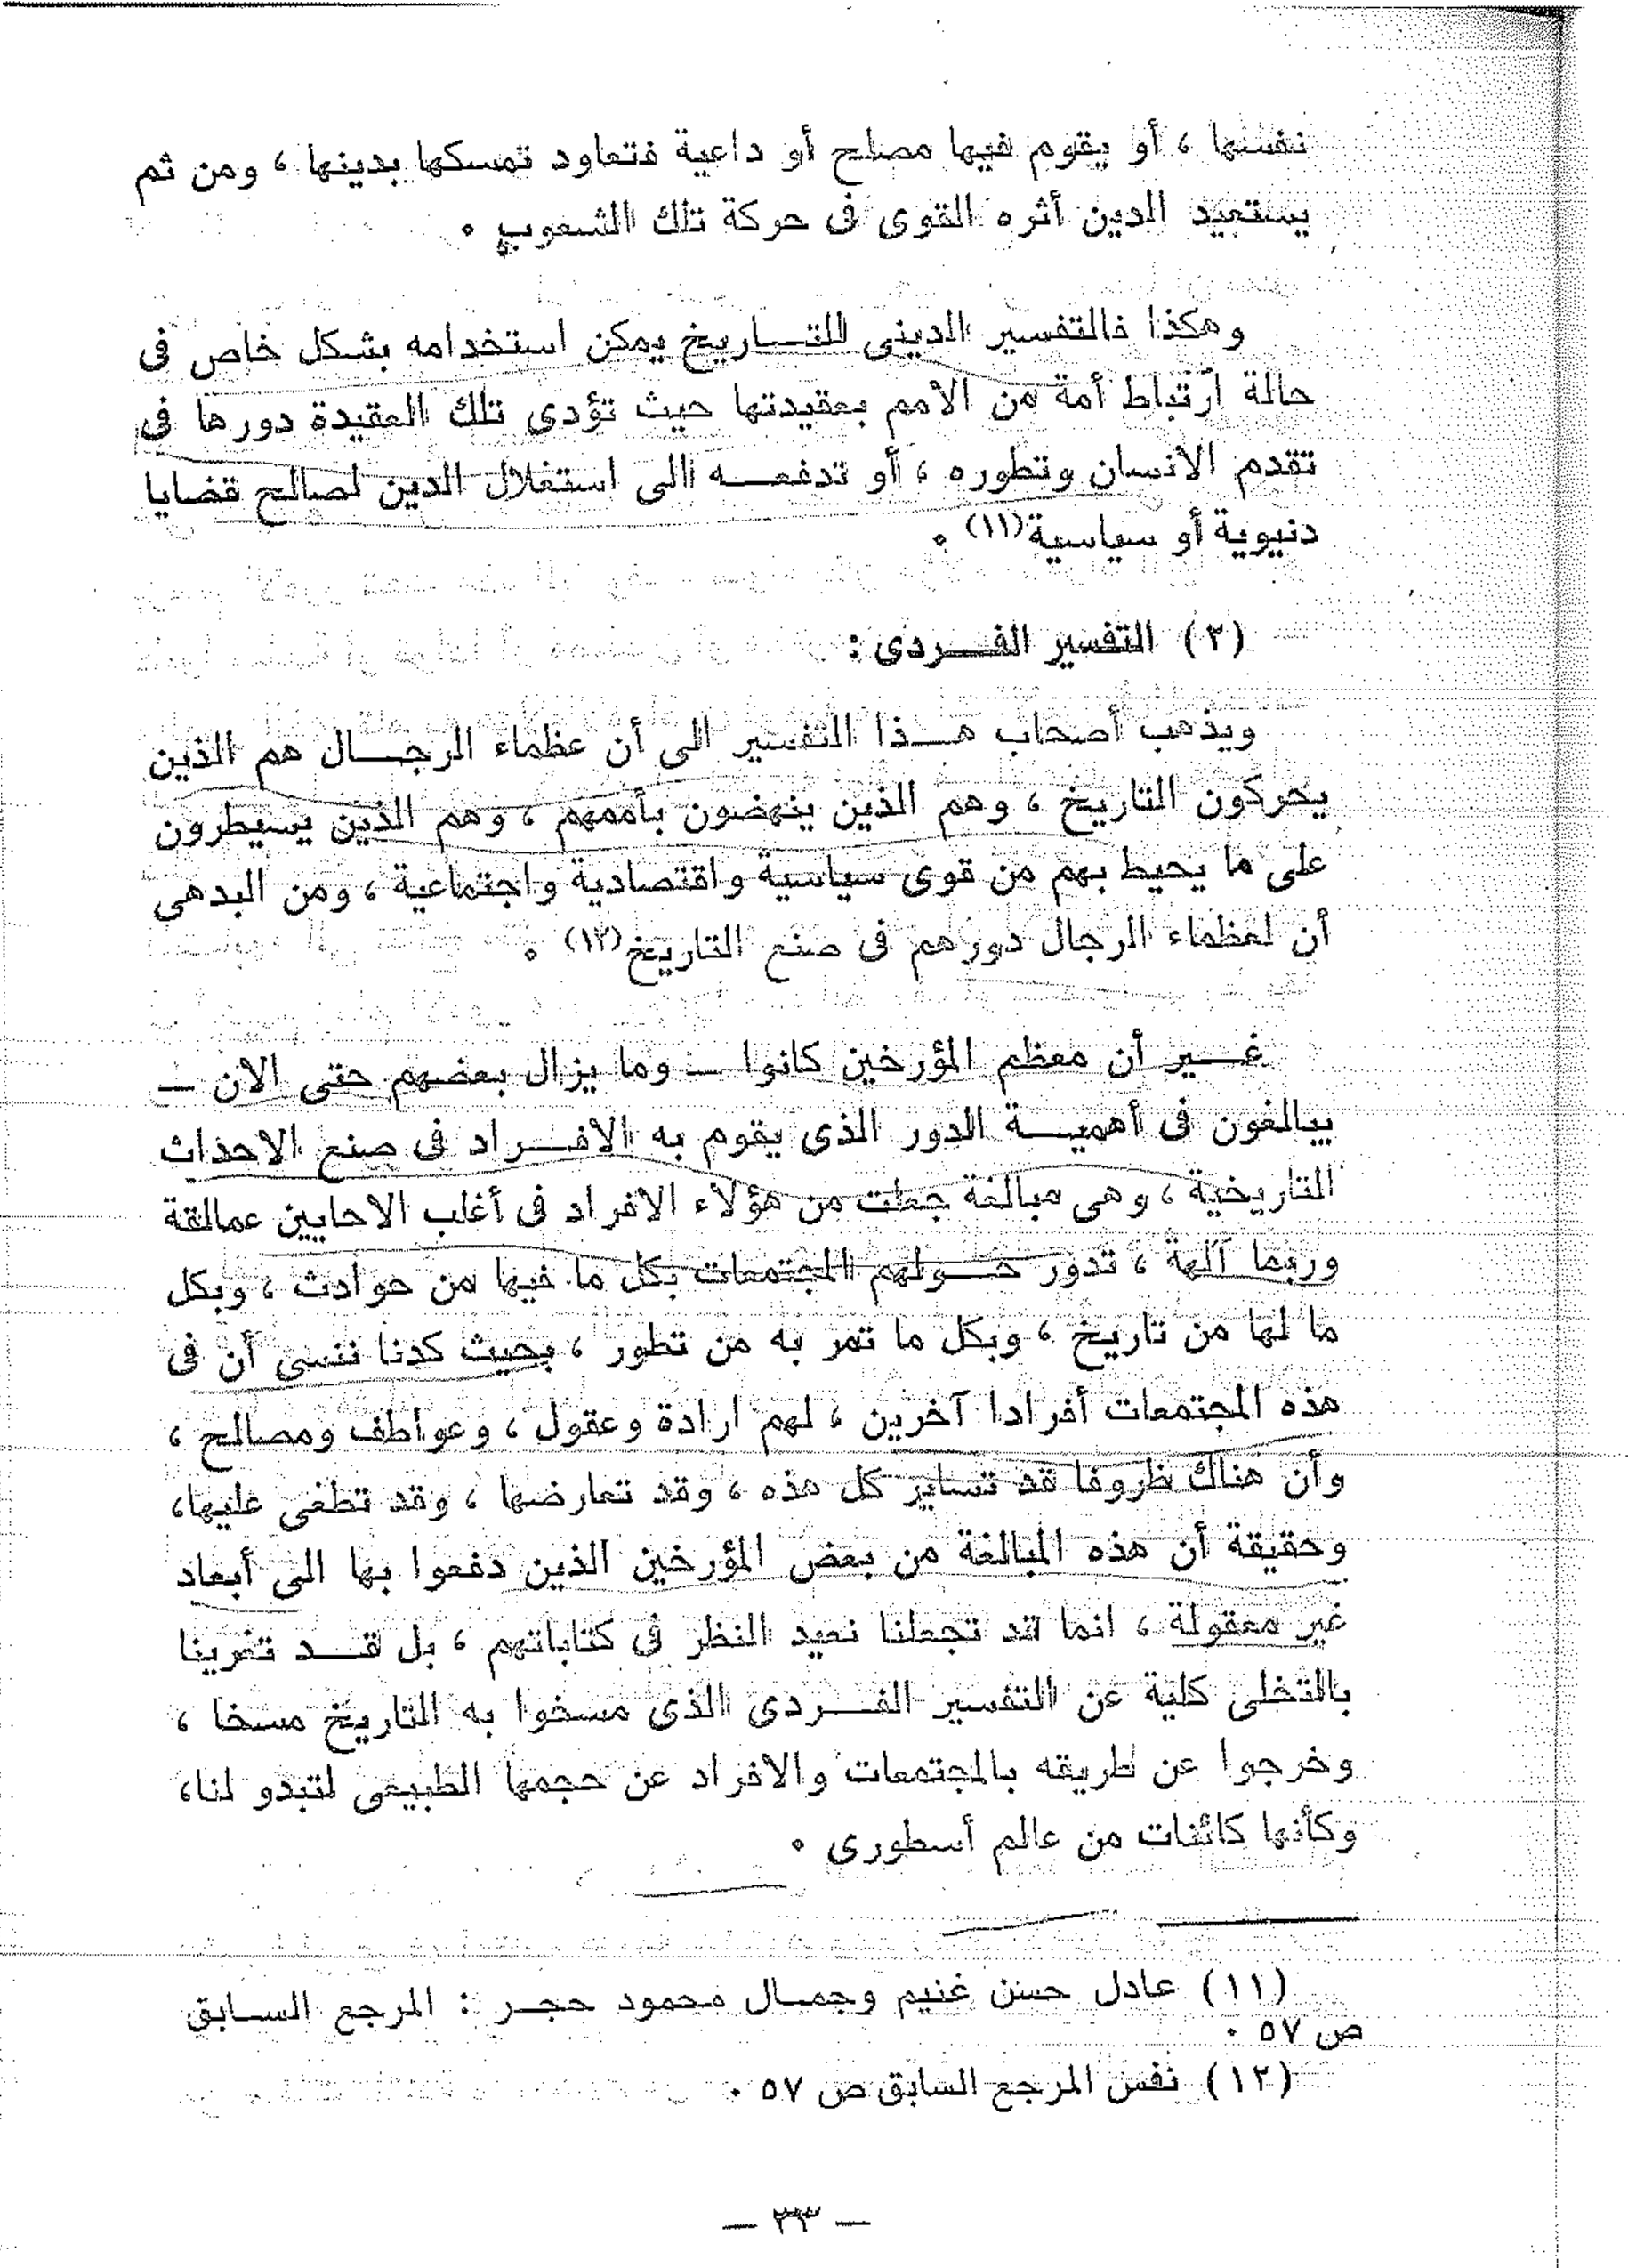 نفسها ، أو يقوم فيها مصلح أو داعية فتعاود تمسكها بدينها ، ومن ثم
يستعيد الدين أثره القوى فى حركة تلك الشعوب ٠
وهكذا فالتفسير الدينى للتـــاريخ يمكن استخدامه بشكل خاص فى
حالة ارتباط أمة من الامم بعقيدتها حيث تؤدى تلك العقيدة دورها فى
تقدم الانسان وتطوره ، أو تدفعـــه الى استغلال الدين لصالح قضايا
دنيوية أو سياسية(١١) ٠
(٢) التفسير الفـــردى :
ويذهب أصحاب هـــذا التفسير الى أن عظماء الرجـــال هم الذين
يحركون التاريخ ، وهم الذين ينهضون بأممهم ، وهم الذين يسيطرون
على ما يحيط بهم من قوى سياسية واقتصادية واجتماعية ، ومن البدهى
أن لعظماء الرجال دورهم فى صنع التاريخ(١٢) ٠
غـــير أن معظم المؤرخين كانوا — وما يزال بعضهم حتى الان —
يبالغون فى أهميـــة الدور الذى يقوم به الافـــراد فى صنع الاحداث
التاريخية ، وهى مبالغة جعلت من هؤلاء الافراد فى أغلب الاحايين عمالقة
وربما آلهة ، تدور حـــولهم المجتمعات بكل ما فيها من حوادث ، وبكل
ما لها من تاريخ ، وبكل ما تمر به من تطور ، بحيث كدنا ننسى أن فى
هذه المجتمعات أفرادا آخرين ، لهم ارادة وعقول ، وعواطف ومصالح ،
وأن هناك ظروفا قد تساير كل هذه ، وقد تعارضها ، وقد تطغى عليها،
وحقيقة أن هذه المبالغة من بعض المؤرخين الذين دفعوا بها الى أبعاد
غير معقولة ، انما قد تجعلنا نعيد النظر فى كتاباتهم ، بل قـــد تغرينا
بالتخلى كلية عن التفسير الفـــردى الذى مسخوا به التاريخ مسخا ،
وخرجوا عن طريقه بالمجتمعات والافراد عن حجمها الطبيعى لتبدو لنا،
وكأنها كائنات من عالم أسطورى ٠
(١١) عادل حسن غنيم وجمـال محمود حجـر : المرجع السـابق
ص ٥٧ ٠
(١٢) نفس المرجع السابق ص ٥٧ ٠
— ٣٣ —